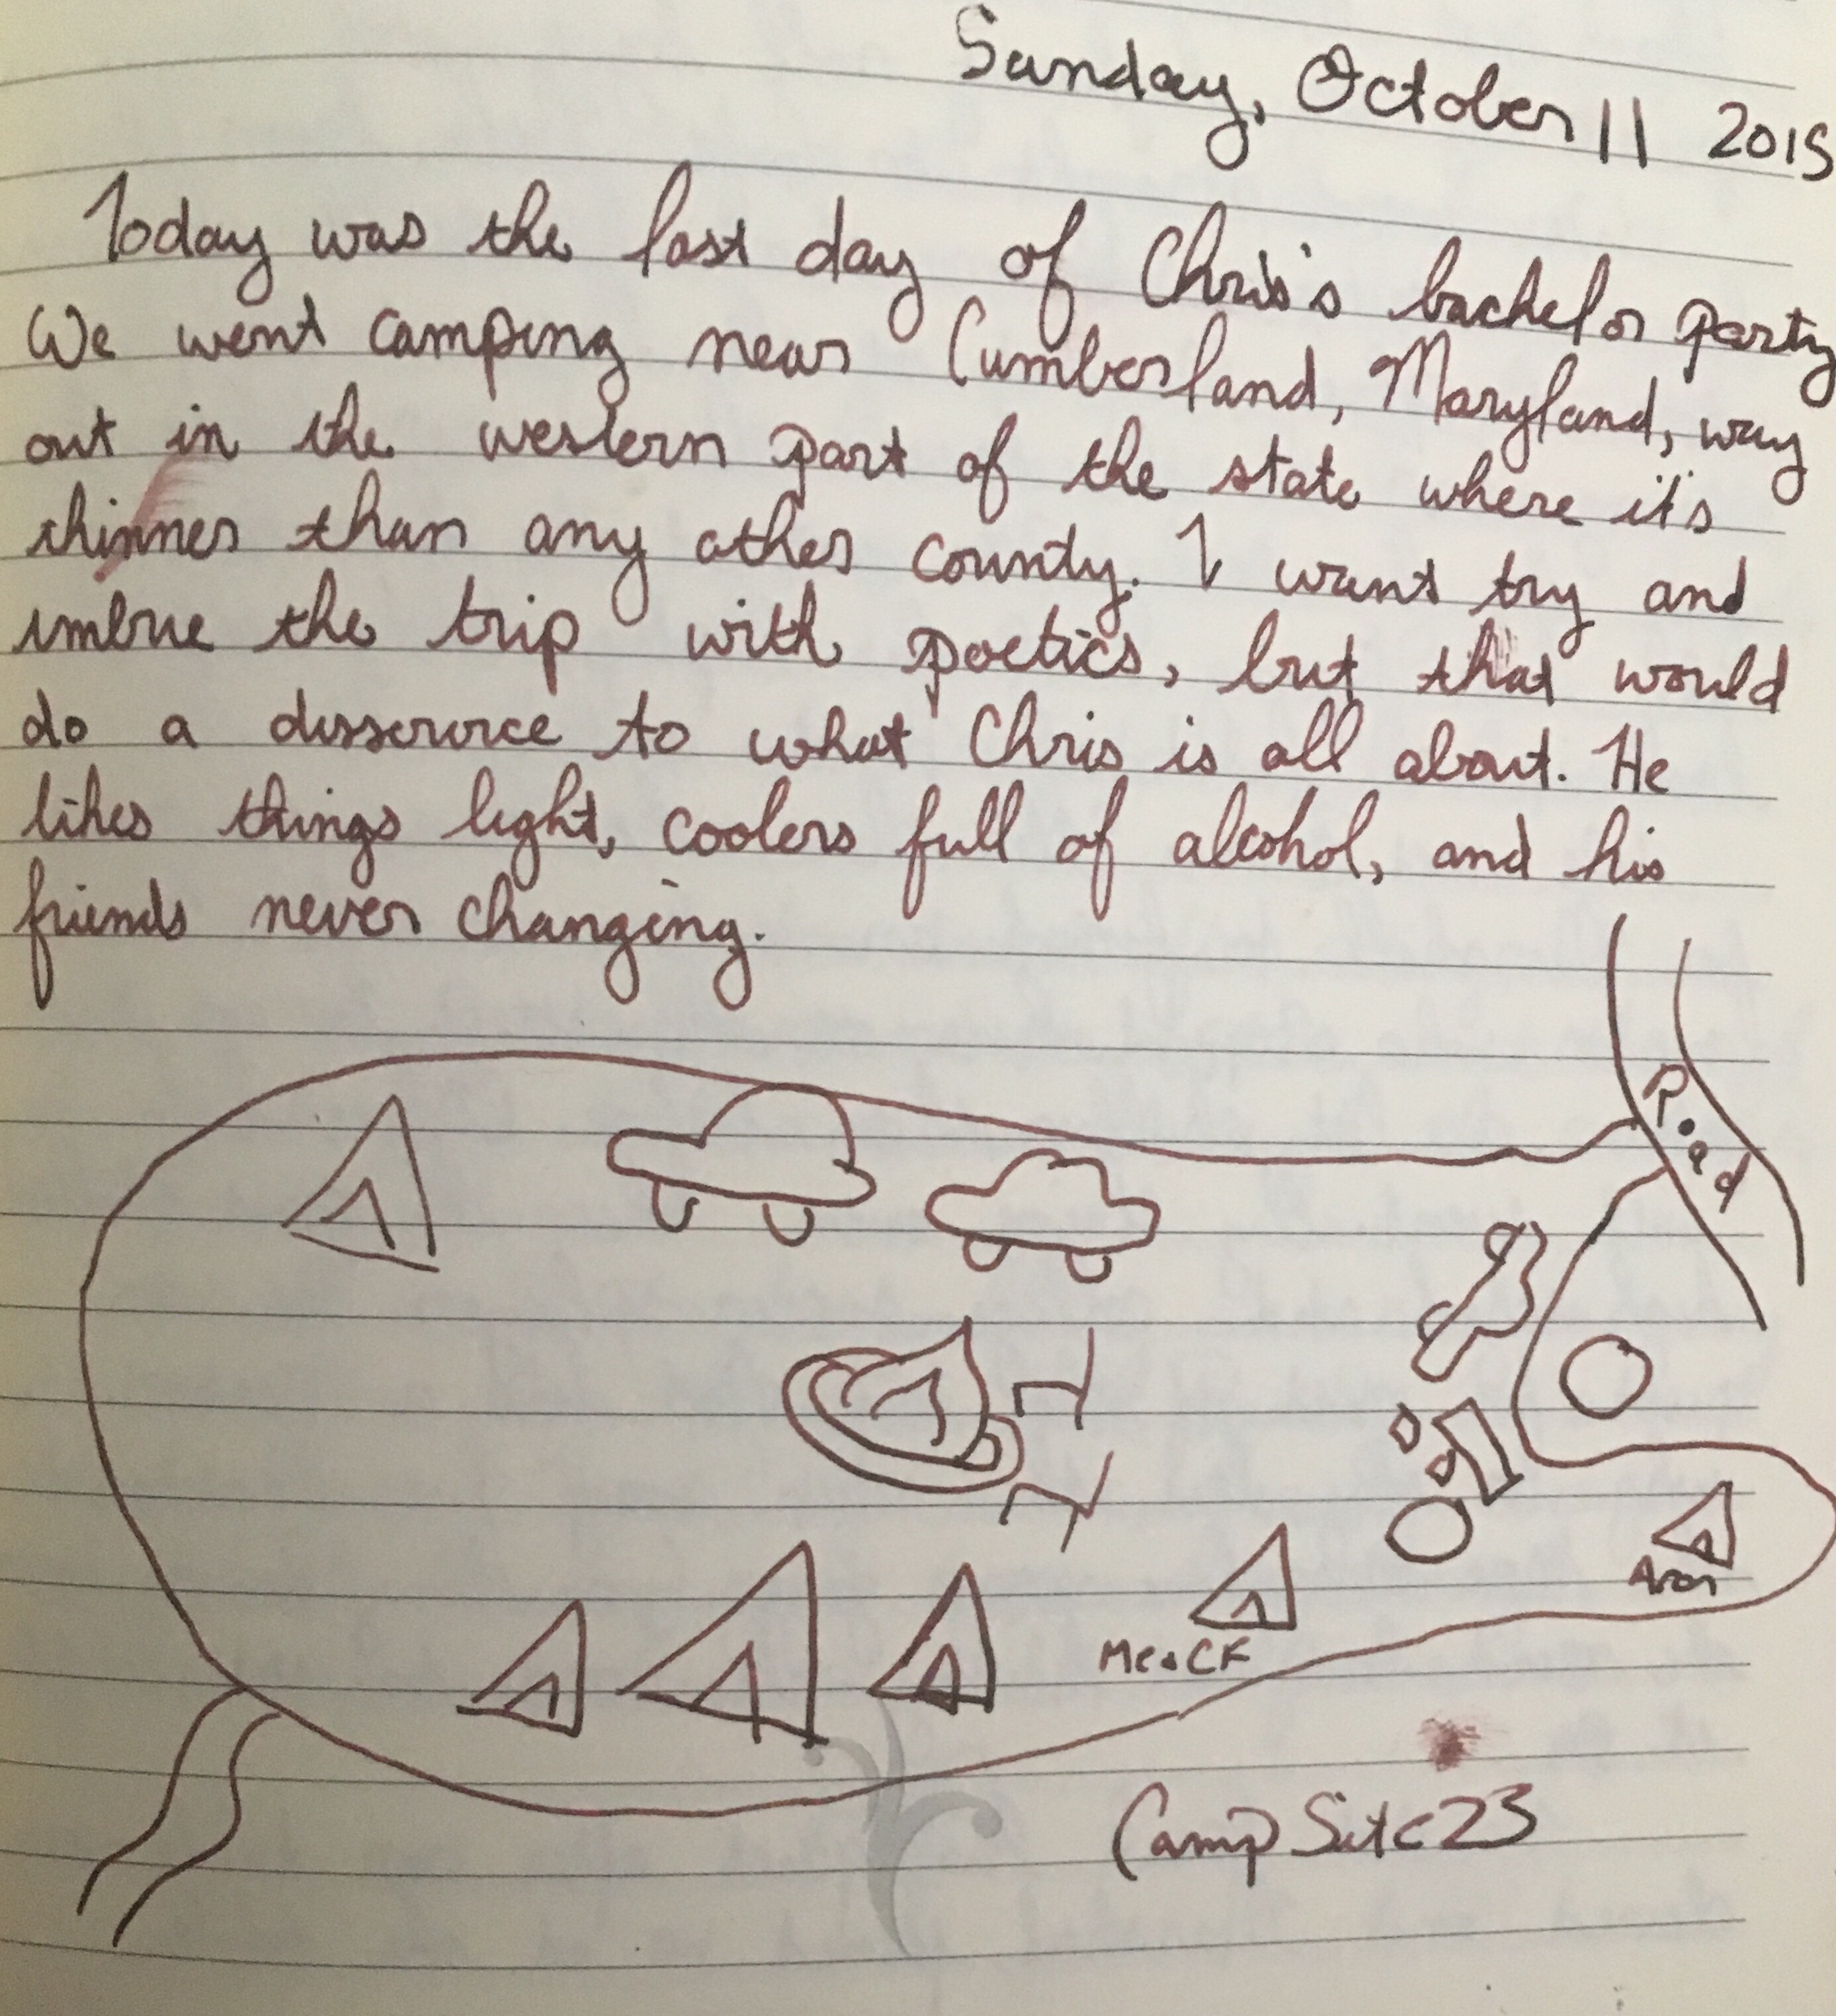 Sunday, October 11 2015
Today was the last day of Chris's bachelor party
We went camping near Cumberland, Maryland, way
out in the western part of the state where it's
thinner than any other county. I want try and
imbue the trip with poetics, but that would
do a disservice to what Chris is all about. He
likes things light, coolers full of alcohol, and his
friends never changing.
Road
Aron
Me & CF
Camp Site 23